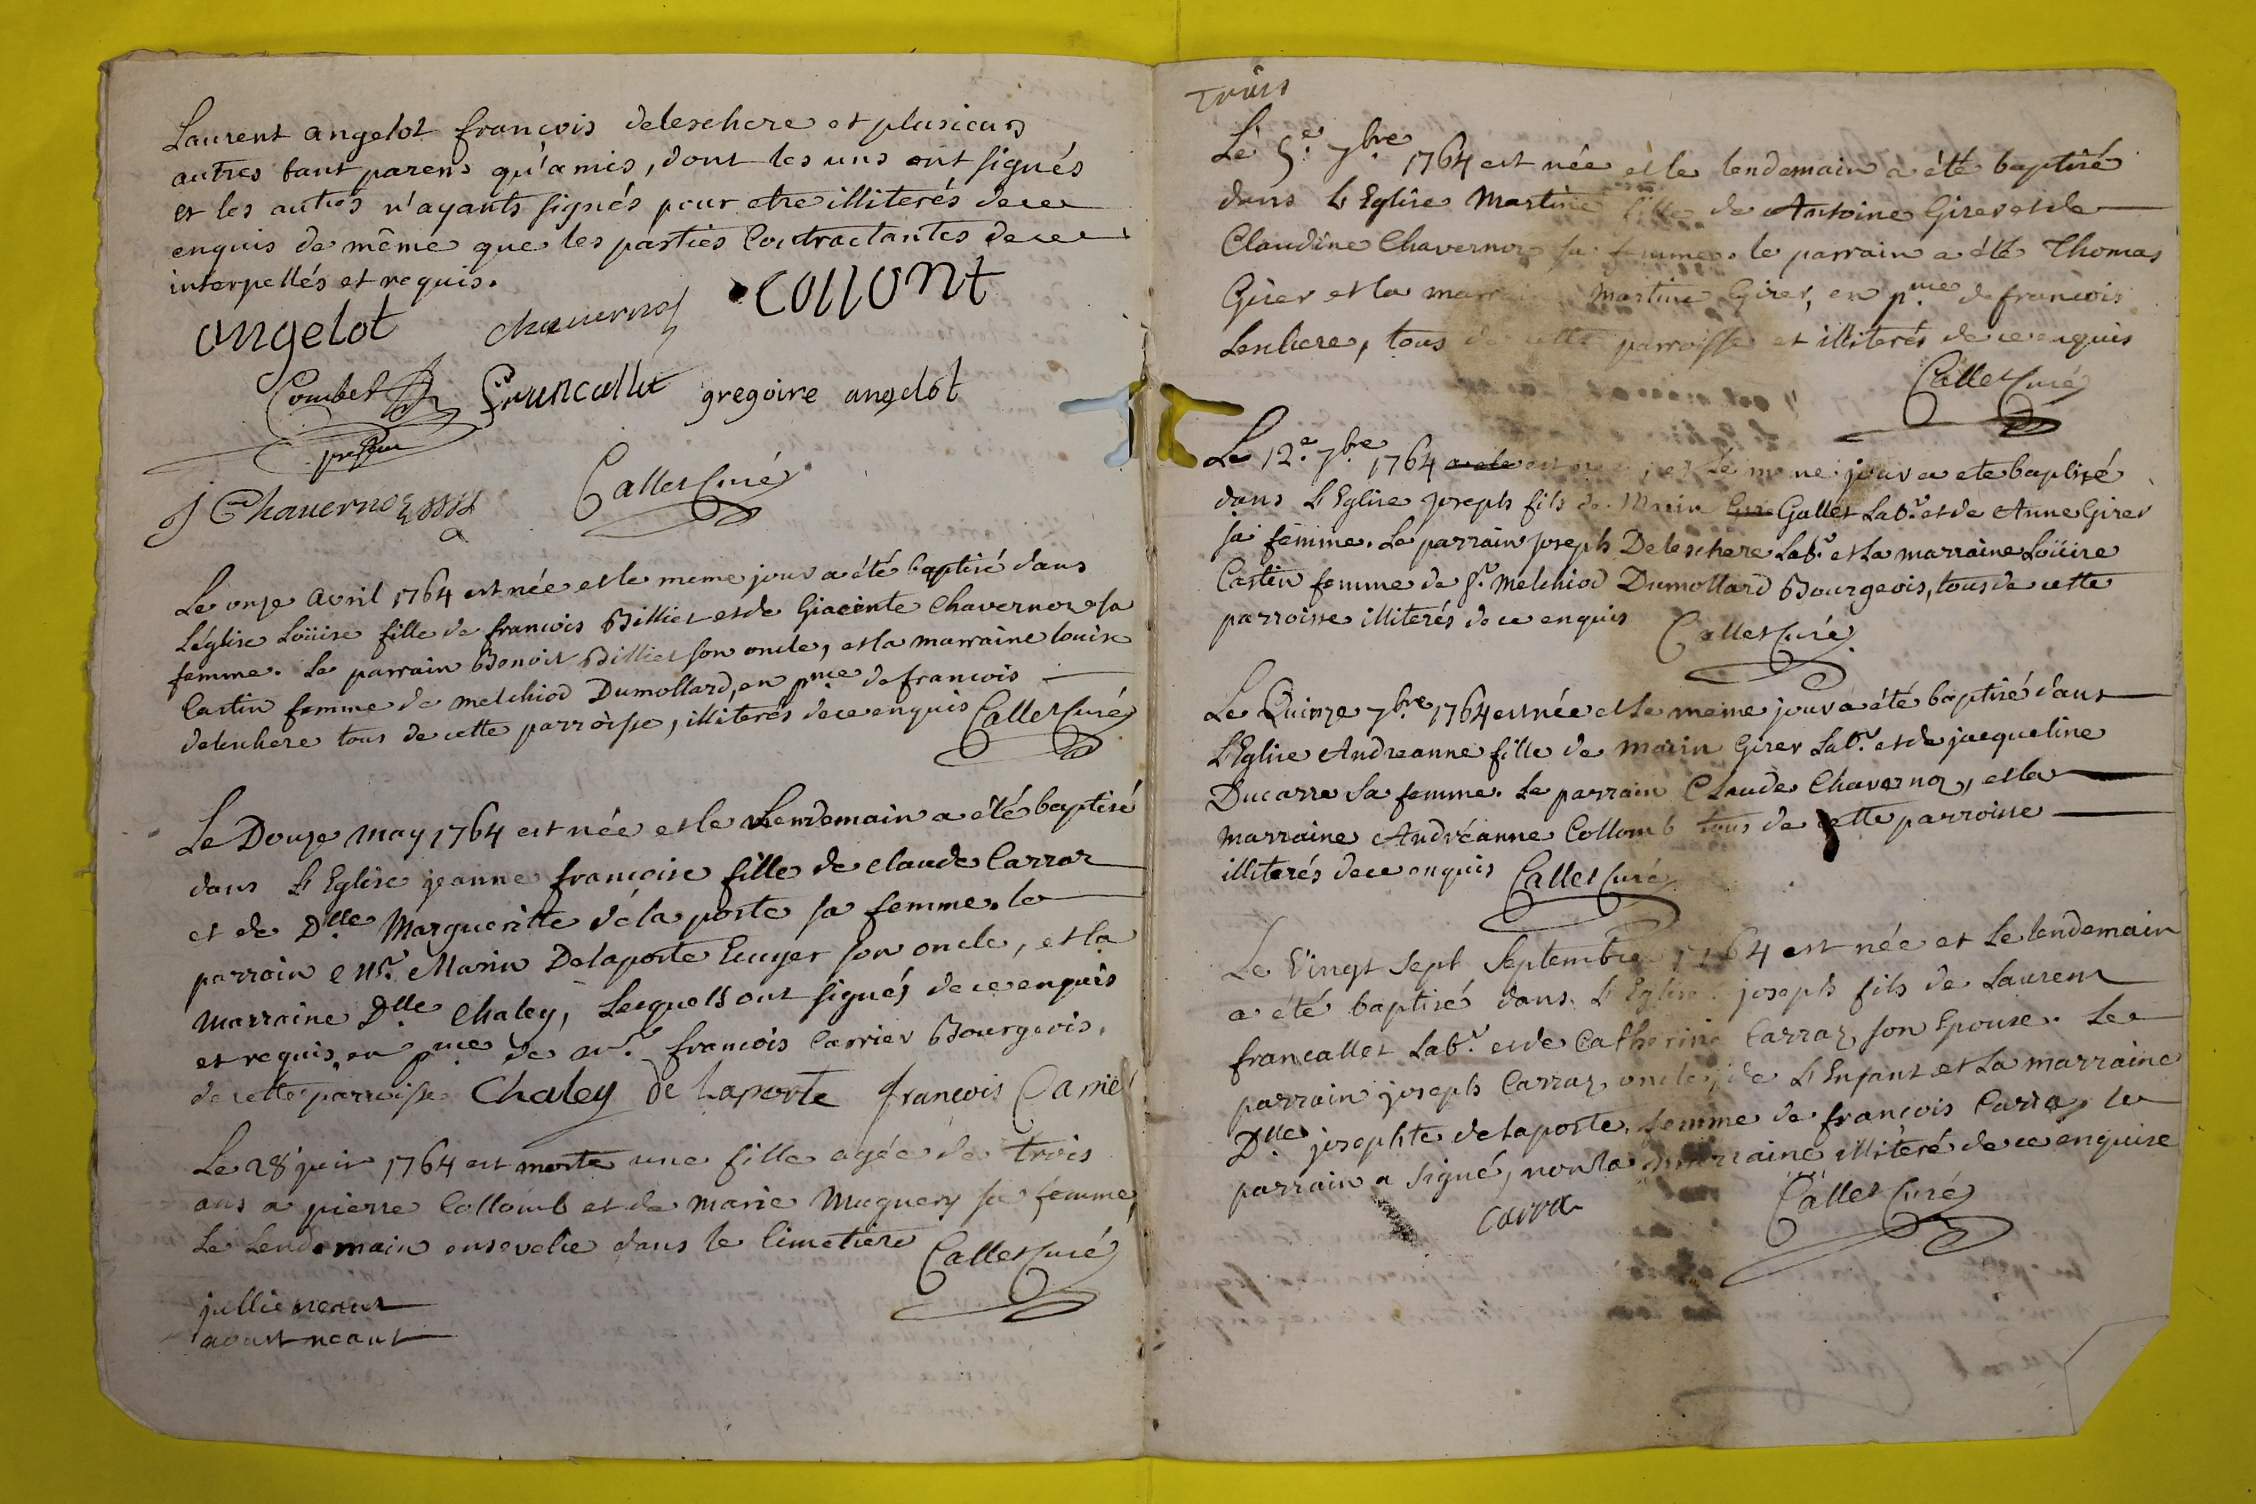 Laurent angelot françois deleschere et plusieurs
autres tant parens qu'amis, dont les uns ont signés
et les autres n'ayants signés pour etre illiterés de ce
enquis de même que les parties Contractantes de ce
interpellés et requis.
angelot chavernoz COLLONT
Combet francallet gregoire angelot
J Chavernoz Callet Curé
Le onze avril 1764 est née et le meme jour a été baptisé dans
L'église Loüise fille de françois Billiet et de Giacinte Chavernoz sa
femme. Le parrain Benoit Billiet son oncle, et la marraine louise
Castin femme de melchiod Dumollard, en pnce de francois
deleschere tous de cette parroisse, illiterés de ce enquis Callet Curé
Le Douze may 1764 est née et le Lendemain a été baptisé
dans L'Eglise jeanne françoise fille de claude Carraz
et de Dlle Margueritte déla poste sa femme. le
parrain Mr. Marin Delaposte Ecuyer son oncle, et la
marraine Dlle Chaley, Lesquels ont signés de ce enquis
et requis, en pnce de Mr. françois Carrier Bourgeois,
de cette parroisse Chaley de Laporte françois Carriel
Le 28 juin 1764 est morte une fille agée de trois
ans a pierre Collomb et de marie Muguery sa femme,
Le Lendemain ensevelie dans le Cimetiere Callet Curé
jullie neant
aoust neant
Trois
Le 5e. 7bre 1764 est née et le lendemain a été baptisé
dans L'Eglise Martine fille de Antoine Girer et de
Claudine Chavernoz sa femme. le parrain a été Thomas
Girer et la marraine Martine Girer, en pnce de francois
Leschere, tous de cette parroisse et illiterés de ce enquis
Callet Curé
Le 12e. 7bre 1764 est né et Le meme jour a ete baptisé
dans L'Eglise joseph fils de Marin Gallet Labr. et de Anne Girer
sa femme. Le parrain joseph Deleschere Labr. et La marraine Loüise
Castin femme de Sr. Melchiod Dumollard Bourgeois, tous de cette
parroisse illiterés de ce enquis Callet Curé
Le Quinze 7bre 1764 est née et Le meme jour a été baptisé dans
L'Eglise Andreanne fille de marin Girer Labr. et de jacqueline
Ducarre sa femme. Le parrain Claude Chavernoz, et la
marraine Andréanne Collomb tous de cette parroisse
illiterés de ce enquis Callet Curé
Le Vingt Sept Septembre 1764 est née et Le lendemain
a été baptisé dans L'Eglise joseph fils de Laurent
francallet Labr. et de Catherine Carraz son Epouse. Le
parrain joseph Carraz oncle de L'Enfant et La marraine
Dlle josephte delaposte femme de françois Carraz le
parrain a signé, non la marraine illiteré de ce enquise
Carra Callet Curé